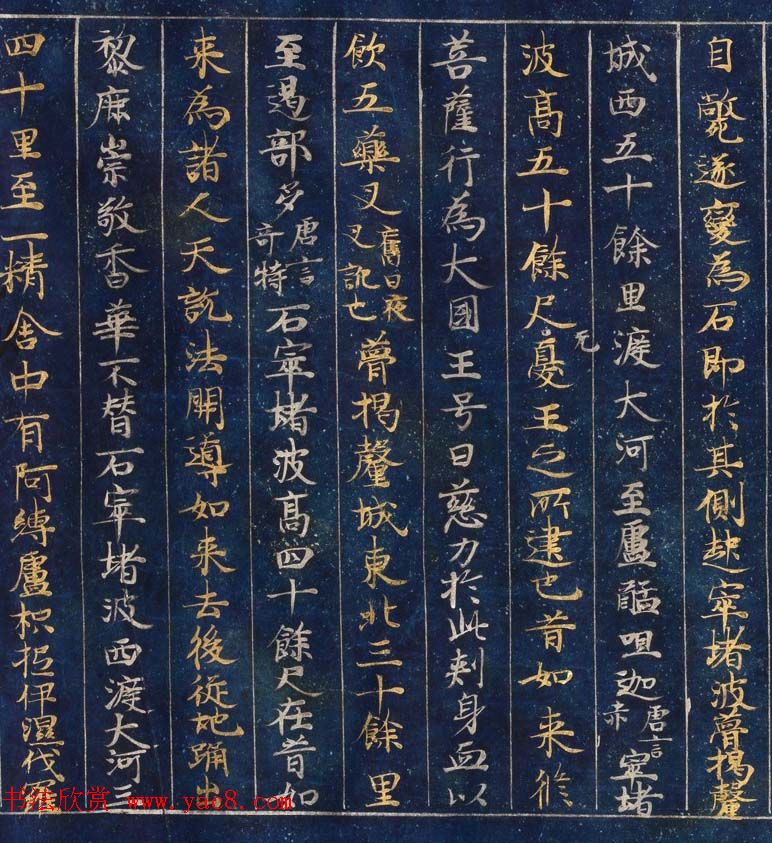 自斃遂變為石即於其側起窣堵波瞢揭釐
城西五十餘里渡大河至盧醯呾迦唐言赤窣堵
波高五十餘尺无憂王之所建也昔如来修
菩薩行為大國王号曰慈力於此刾身血以
飲五藥叉舊曰夜叉訛也瞢揭釐城東北三十餘里
至遏部多唐言奇特石窣堵波高四十餘尺在昔如
来為諸人天說法開導如来去後從地踊出
黎庶崇敬香華不替石窣堵波西渡大河三
四十里至一精舍中有阿縛盧枳抵伊濕伐羅
书法欣赏 www.yac8.com